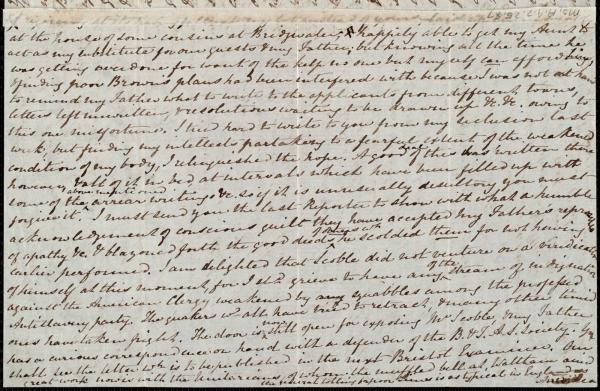 Ms. A.1.2.
at the house of some cousins at Bridgwater, & happily able to get my Aunt to
act as my substitute for our guests & my Father, but knowing all the time he
was getting overdone for want of the help no one but my self can afford him,
& finding poor Brown's plans had been interfered with because I was not at home
to remind my Father what to write to the applicants from different towns,
letters left unwritten, & resolutions wanting to be drawn up &c. &c. owing to
this one misfortune. I tried hard to write to you from my seclusion last
week, but finding my intellects partaking to a fearful extent of the weakened
condition of my body, I relinquished the hope. A good deal of this was written there
however, & all of it in bed, at intervals which have been filled up with
some of the arrear writings above mentioned &c. so if it is unusually desultory you must
forgive it. I must send you the last Reporter to show with what a humble
acknowledgement of conscious guilt they have accepted my Father's reproofs
of apathy &c, & blazoned forth the good deeds of others wh. he scolded them for not having
earlier performed. I am delighted that Scoble did not venture on a vindication
of himself at this moment, for I shd. grieve to have any of the stream of indignation
against the American Clergy weakened by any squabbles among the professed
Antislavery party. The Quakers wd. all have tried to retract, & many other timid
ones have taken fright. The door is now still open for exposing Mr. Scoble, & my Father
has a curious correspondence on hand with a defender of the B. & F. A. S. Society. You
shall see the letter wh. is to be published in the next Bristol Examiner. Our
great work now is with the Unitarians, of whom the muffled bell at Waltham and
the funeral tolling upon there is as typical in England as